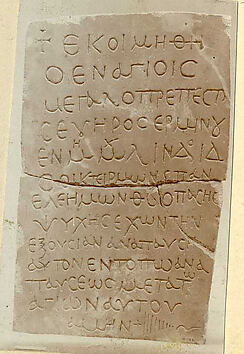 ☩ ΕΚΟΙΜΗΘΗ
Ο ΕΝ ΑΓΙΟΙϹ
ΜΕΓΑΛΟΠΡΕΠΕϹΤ
ϹΕΥΗΡΟϹ
ΕΝ ΙΝΔ ΙΔ
ΟΙΚΤΕΙΡΜ
ΕΛΕΗΜΩΝ ΘϹ Ο ΠΑϹΗϹ
ΨΥΧΗϹ ΕΧΩΝ ΤΗΝ
ΕΞΟΥϹΙΑΝ ΑΝΑΠΑΥϹ
ΑΥΤΟΝ ΕΝ ΤΟΠΩ ΑΝΑ
ΠΑΥϹΕΩϹ ΜΕΤΑ Τ
ΑΓΙΩΝ ΑΥΤΟΥ
ΑΜΗΝ